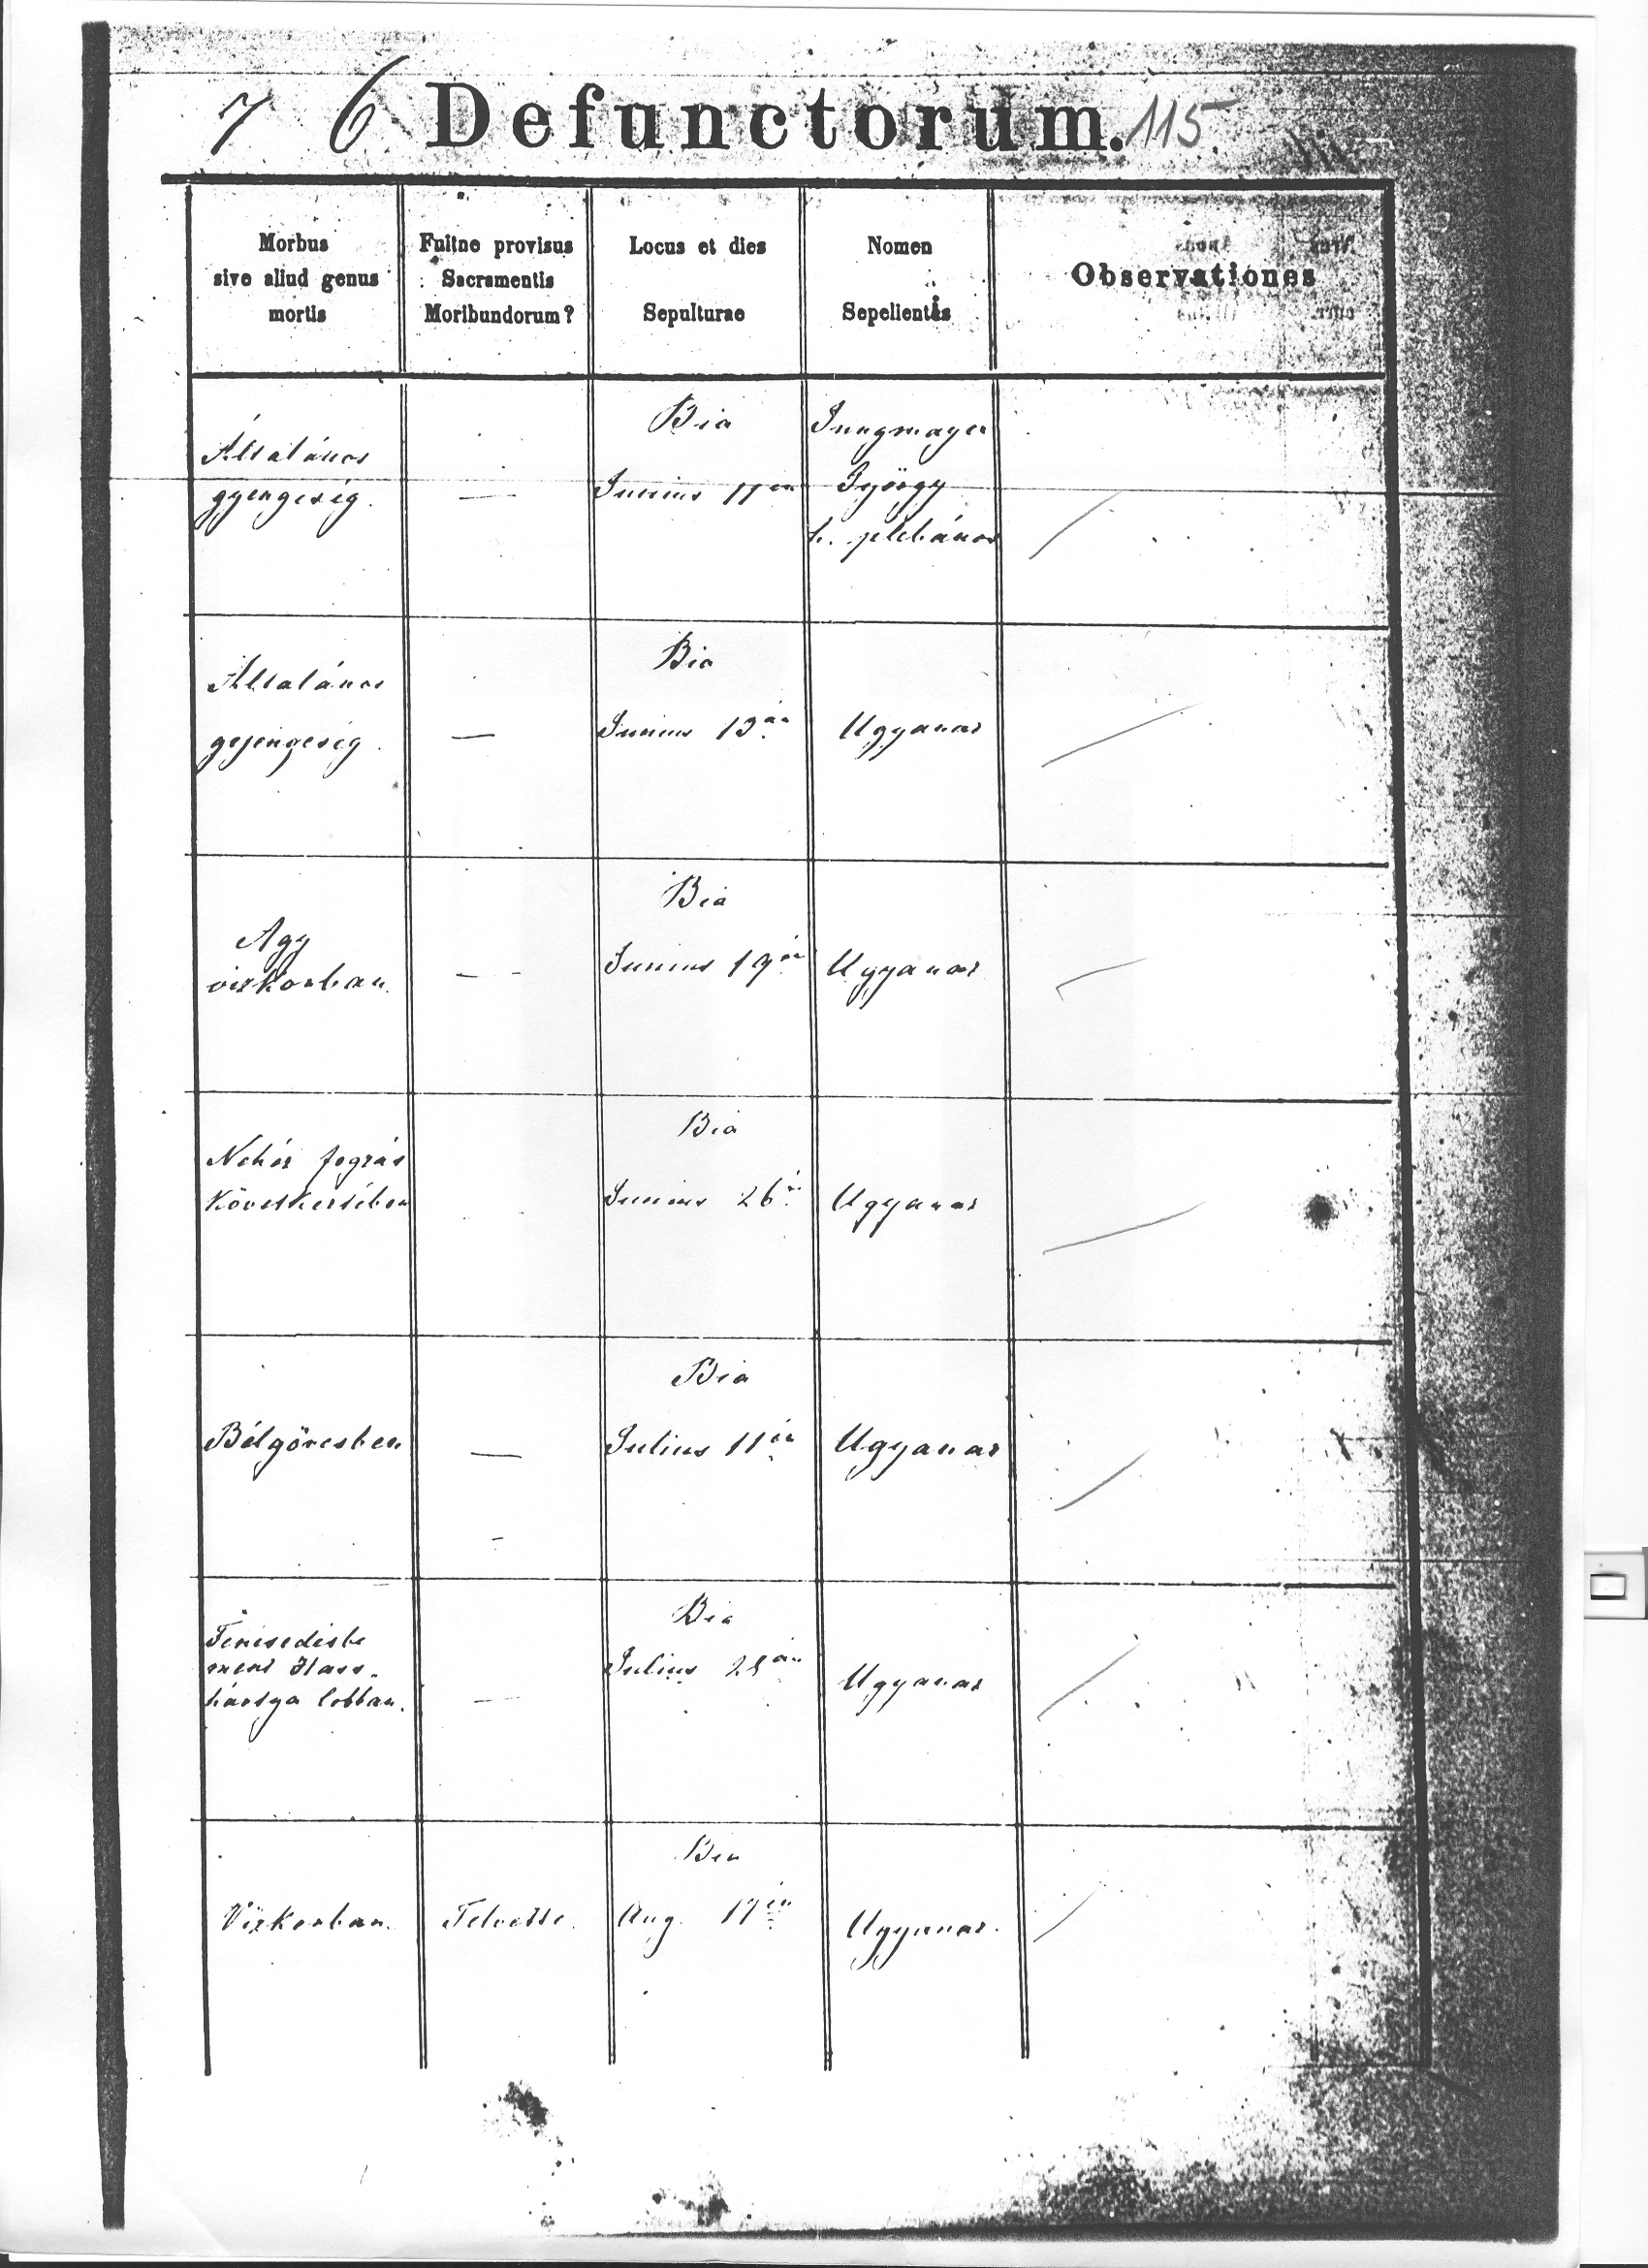 7 6 Defunctorum. 115
Morbus
sive aliud genus
mortis
Fuitne provisus
Sacramentis
Moribundorum?
Locus et dies
Sepulturae
Nomen
Sepelientis
Observationes
Általános
gyengeség.
—
Bia
Junius 11én
Jungmayer
György
h. plébános
Általános
gyengeség.
—
Bia
Junius 13án
Ugyanaz
Agy
vizkorban.
—
Bia
Junius 19én
Ugyanaz
Nehéz fogzás
következtében
Bia
Junius 26
Ugyanaz
Bélgörcsben
—
Bia
Julius 11én
Ugyanaz
hártya lobban.
—
Bia
Julius
Ugyanaz
Vizkorban.
Felvette.
Bia
Aug. 17én
Ugyanaz.